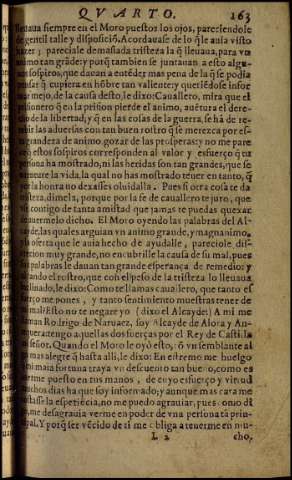 QVARTO. 163
lleuaua siempre en el Moro puestos los ojos, pareciendole
de gentil talle y disposiciõ. Acordauase de lo q̃ le auia visto
hazer; pareciale demasiada tristeza la q̃ lleuaua, para vn
animo tan grãde: y porq̃ tambien se juntauan a esto algu-
nos sospiros, que dauan a entẽder mas pena de la q̃ se podia
pensar q̃ cupiera en hõbre tan valiente: y queriẽdose infor
mar mejor de la causa desto, le dixo: Cauallero, mira que el
prisionero q̃ en la prision pierde el animo, auẽtura el dere-
cho de la libertad, y q̃ en las cosas de la guerra, se hã de re-
cebir las aduersas con tan buen rostro q̃ se merezca por es-
ta grandeza de animo, gozar de las prosperas: y no me pare
cen estos sospiros corresponden al valor y esfuerço q̃ tu
persona ha mostrado, ni las heridas son tan grandes, que se
auenture la vida, la qual no has mostrado tener en tanto, q̃
por la honra no dexasses oluidalla. Pues si otra cosa te da
tristeza, dimela, porque por la fe de cauallero te juro, que
vse contigo de tanta amistad que jamas te puedas quexar
de auermelo dicho. El Moro oyendo las palabras del Al-
cayde, las quales arguian vn animo grande, y magnanimo,
y la oferta que le auia hecho de ayudalle, pareciole dis-
crecion muy grande, no encubrille la causa de su mal, pues
sus palabras le dauan tan grande esperança de remedio: y
alçando el rostro, que con el peso de la tristeza lo lleuaua
inclinado, le dixo: Como te llamas cauallero, que tanto es
fuerço me pones, y tanto sentimiento muestras tener de
mi mal? Esto no te negare yo (dixo el Alcayde:) A mi me
llaman Rodrigo de Naruaez, soy Alcayde de Alora y An-
tequera: tengo aquellas dos fuerças por el Rey de Castilla
mi señor. Quando el Moro le oyò esto, cõ vn semblante al
go mas alegre q̃ hasta alli, le dixo: En estremo me huelgo
que mi mala fortuna traya vn descuento tan bueno, como es
auerme puesto en tus manos, de cuyo esfuerço y virtud
muchos dias ha que soy informado: y aunque mas cara me
costasse la esperiẽcia, no me puedo agrauiar, pues como di
go, me desagrauia verme en poder de vna persona tã prin-
cipal. Y porq̃ ser vẽcido de ti me obliga a tenerme en mu-
L 2 cho,